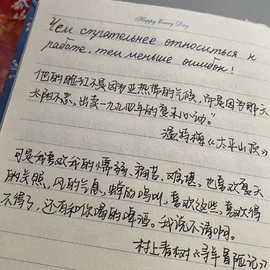 Happy Every Day
Чем старательнее относиться к
работе, тем меньше ошибок!
他的脸红不是因为亚热带的气候, 而是因为昨天
太阳不累, 出卖一九九四年的夏天心动。"
温特梅《太平山顶》
可是我喜欢我的懦弱, 痛苦, 难堪, 也喜欢夏天
的光照, 风的气息, 蝉的鸣叫, 喜欢这些, 喜欢得
不得了, 还有和你喝的啤酒。我说不清啊。
村上春树《寻羊冒险记》